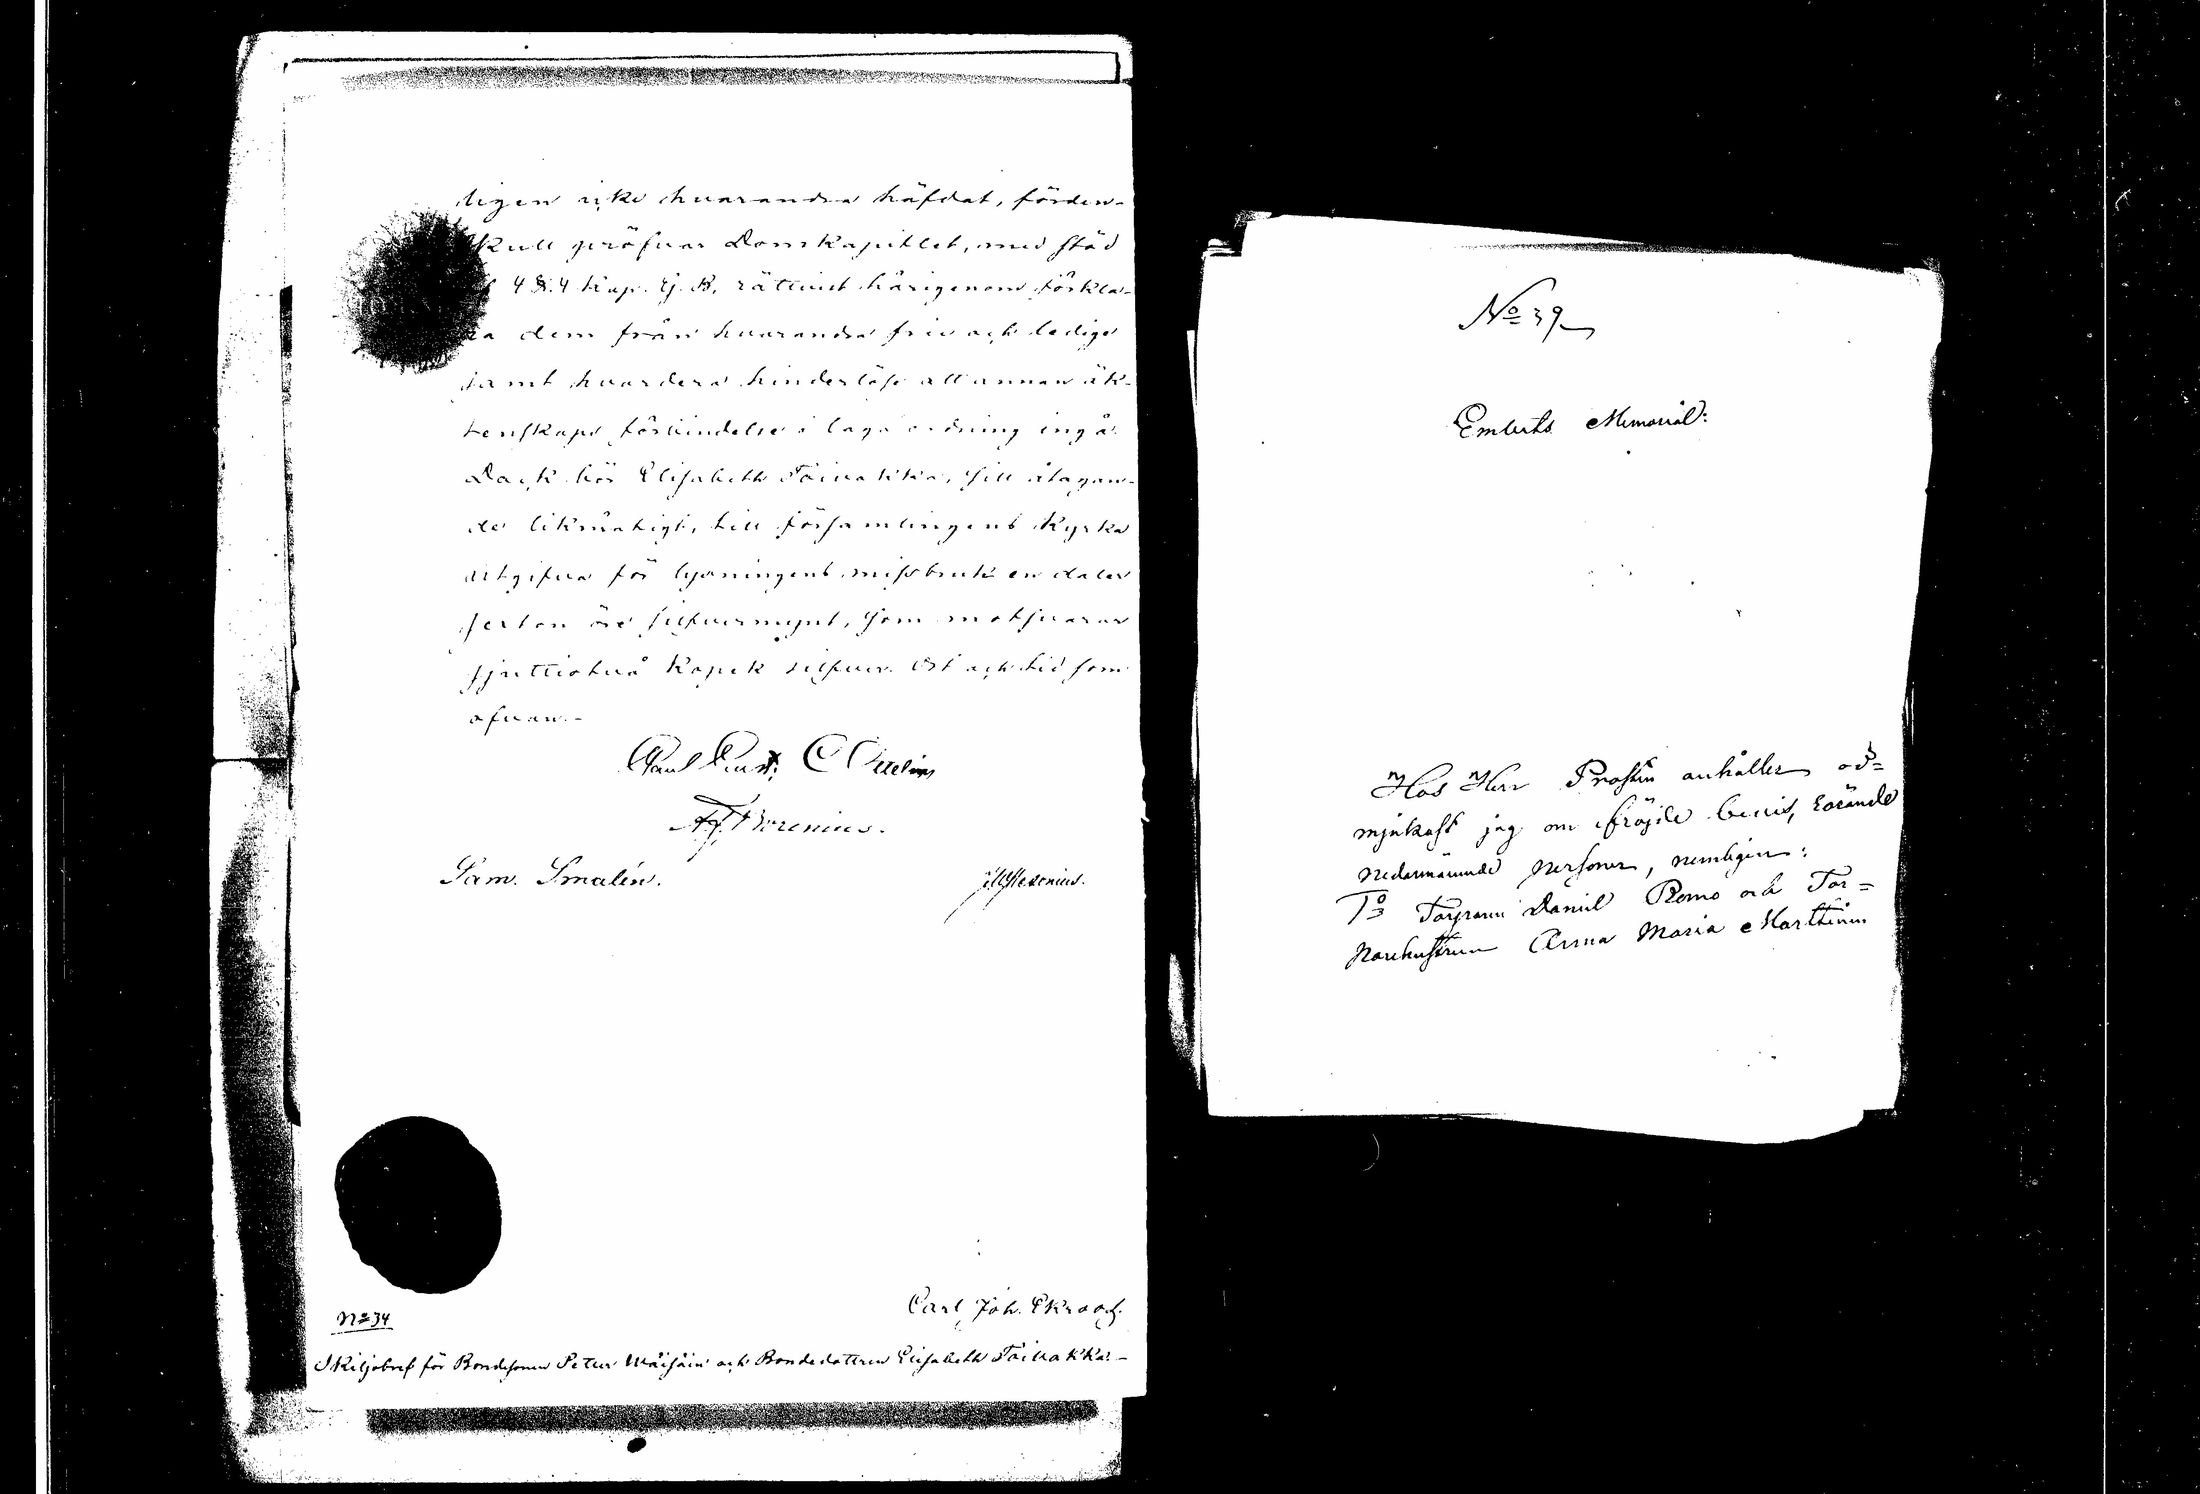 ligen icke hvarandra häfdat, förden-
skull pröfvar Domkapitlet, med stöd
4 §. 4 Kap. G. B. rättvist härigenom förkla-
ra dem från hvarandra fria och lediga
samt hvardera hinderlöst att annan äk-
tenskaps förbindelse i laga ordning ingå.
Dock bör Elisabeth Toivakka, sitt åtagan-
de likmätigt, till församlingens Kyrka
utgifva för lysningens missbruk en daler
sexton öre silfvermynt, som motsvarar
sjuttiotvå Kopek silfver. Ort och tid som
ofvan.-
C Ottelin
Borenius.
Sam. Smalén.
Carl Joh. Ekroos.
No 34
Skiljobref för Bondesonen Petter Wäisäin och Bondedottren Elisabeth Toivakka.-
No 39
Embets Memorial:
Hos Herr Prosten anhåller öd=
mjukast jag om fräjde bevis, rörande
nedannämnde personer, nemligen:
1o Torparen Daniel Romo och Tor=
parehustrun Anna Maria Marttinen